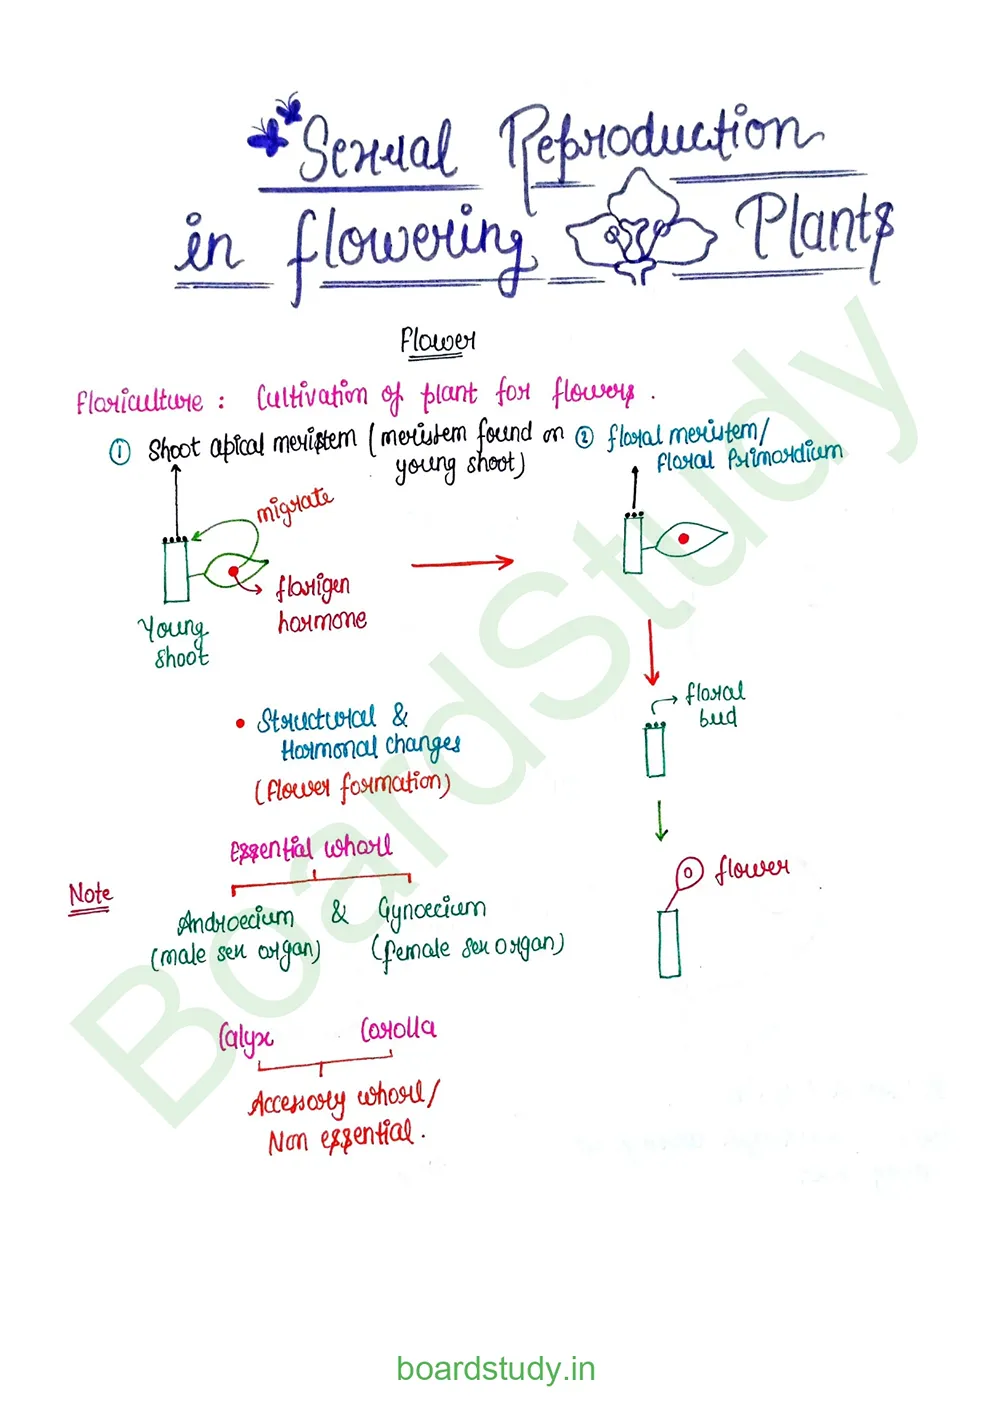 Sexual Reproduction
in flowering Plants
Flower
Floriculture : Cultivation of plant for flowers .
① Shoot apical meristem ( meristem found on
young shoot)
② floral meristem/
floral Primordium
migrate
florigen
hormone
Young
shoot
floral
bud
• Structural &
Hormonal changes
(flower formation)
flower
Essential whorl
Note
Androecium & Gynoecium
(male sex organ) (female sex organ)
Calyx Corolla
Accessory whorl /
Non essential .
BoardStudy
boardstudy.in